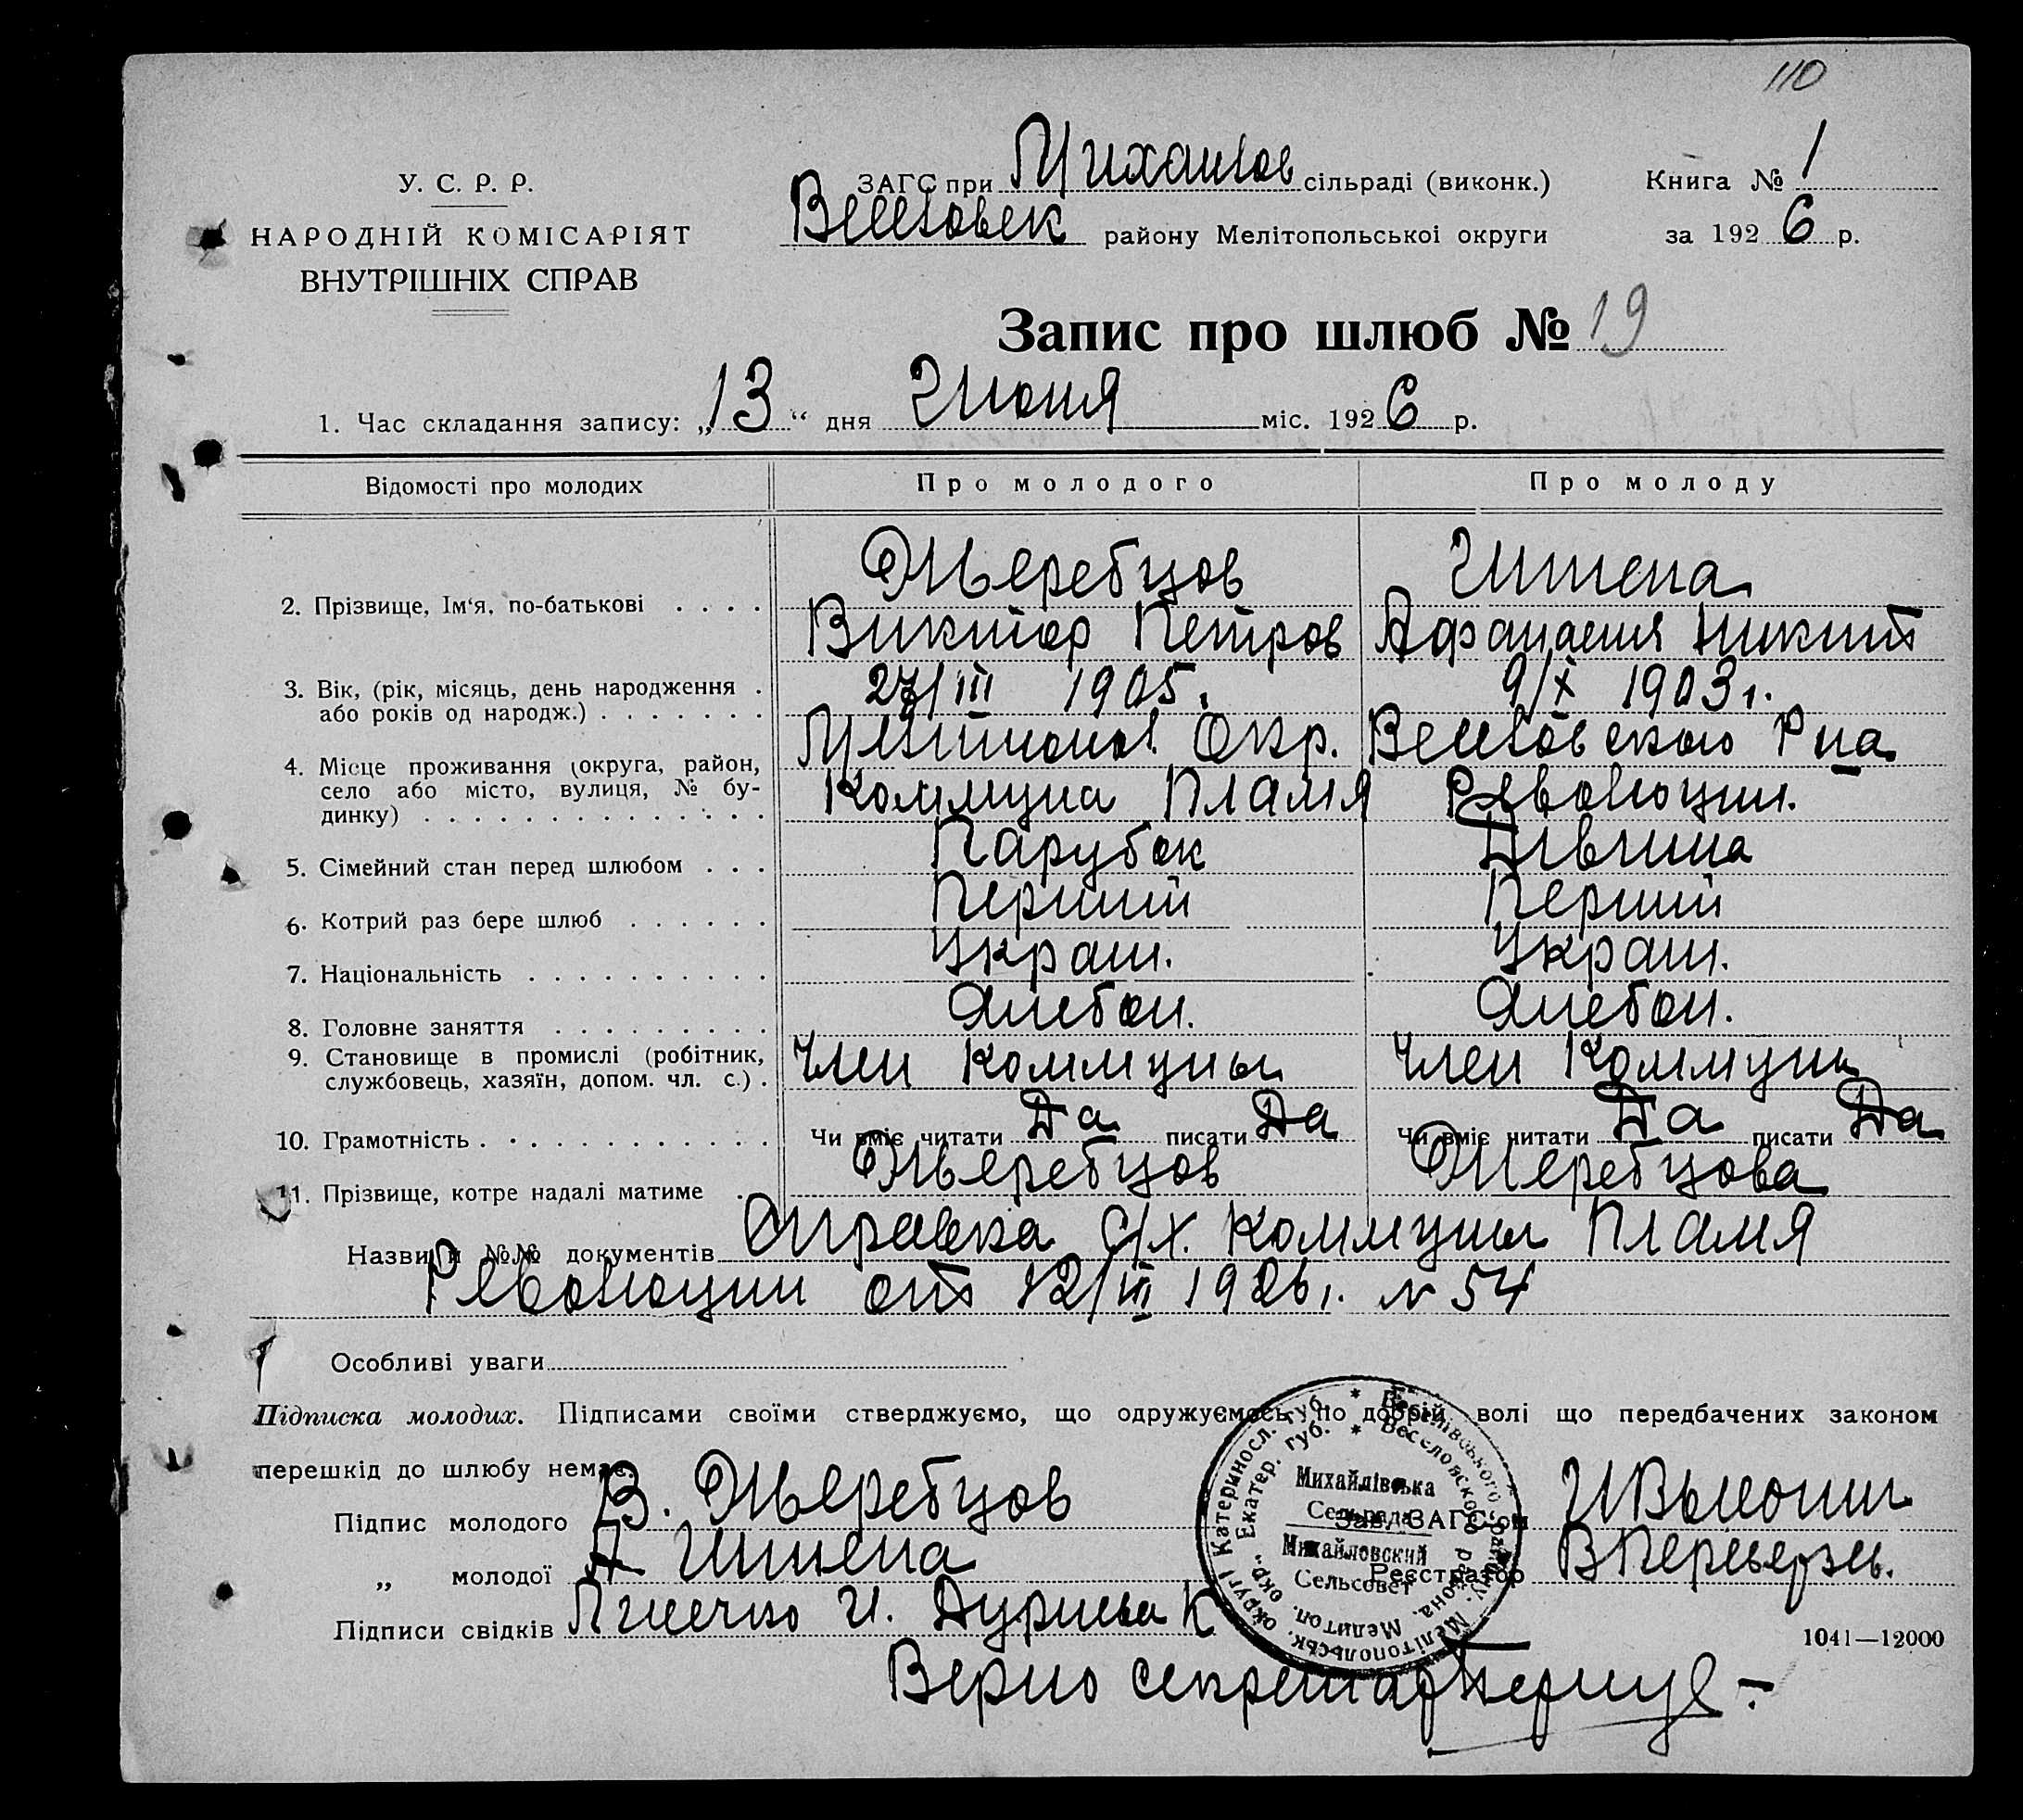 110
У. С. Р. Р.
НАРОДНІЙ КОМІСАРІЯТ
ВНУТРІШНІХ СПРАВ
ЗАГС при Михайлов сільраді (виконк.)
Веселовск району Мелітопольської округи
Книга № 1
за 1926 р.
Запис про шлюб № 19
1. Час складання запису: „13“ дня Июня міс. 1926 р.
Відомості про молодих Про молодого Про молоду
Жеребцов Штепа
2. Прізвище, Ім‘я, по-батькові . . . . Виктор Петров Афанасия Никит
3. Вік, (рік, місяць, день народження . 27/III 1905. 9/X 1903 г.
або років од народж.) . . . . . . .
Мелитопол. Окр. Веселовского Р на
4. Місце проживання (округа, район,
село або місто, вулиця, № бу- Коммуна Пламя Революции.
динку) . . . . . . . . . . . . . .
5. Сімейний стан перед шлюбом . . . Парубок Дівчина
6. Котрий раз бере шлюб . . . . . . Перший Перший
7. Національність . . . . . . . . . . Украин. Украин.
8. Головне заняття . . . . . . . . . Хлебоп. Хлебоп.
9. Становище в промислі (робітник, Член Коммуны Член Коммуны
службовець, хазяїн, допом. чл. с.) .
10. Грамотність . . . . . . . . . . . . Чи вміє читати Да писати Да Чи вміє читати Да писати Да
11. Прізвище, котре надалі матиме . . Жеребцов Жеребцова
Назви й №№ документів Справка с/х. Коммуны Пламя
Революции от 12/III 1926 г. № 54
Особливі уваги
Підписка молодих. Підписами своїми стверджуємо, що одружуємось по добрій волі що передбачених законом
перешкід до шлюбу немає.
Підпис молодого В. Жеребцов
„ молодої А Штепа
Підписи свідків И.
Зав. ЗАГС'ом
Реєстратор
* Веселівського району. Мелітопольськ. округі Катериносл. губ.
* Веселовского района. Мелитоп. окр., Екатер. губ.
Михайлівська
Сельрада
Михайловский
Сельсовет
1041—12000
Верно секретарь